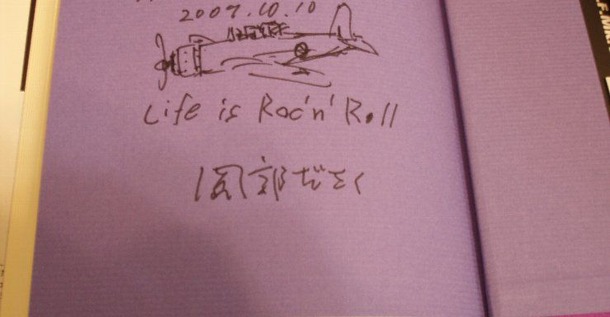 2007.10.10
Life is Roc'n' Roll
岡部ださく